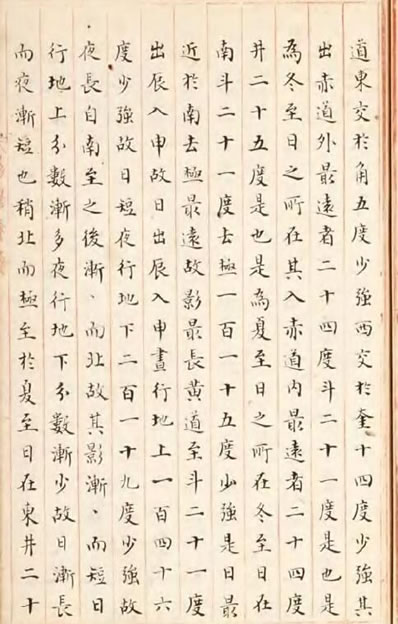 道東交於角五度少強西交於奎十四度少強其
出赤道外最遠者二十四度斗二十一度是也是
為冬至日之所在其入赤道內最遠者二十四度
井二十五度是也是為夏至日之所在冬至日在
南斗二十一度去極一百一十五度少強是日最
近於南去極最遠故影最長黃道至斗二十一度
出辰入申故日出辰入申晝行地上一百四十六
度少強故日短夜行地下二百一十九度少強故
夜長自南至之後漸、而北故其影漸、而短日
行地上分數漸多夜行地下分數漸少故日漸長
而夜漸短也稍北而極至於夏至日在東井二十